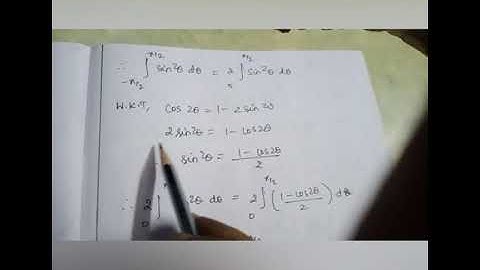 ∴ ∫_{-π/2}^{π/2} sin²θ dθ = 2 ∫_{0}^{π/2} sin²θ dθ
W.K.T, cos 2θ = 1 - 2 sin²θ
2 sin²θ = 1 - cos2θ
sin²θ = (1 - cos2θ)/2
∴ 2 ∫_{0} sin²θ dθ = 2 ∫_{0}^{π/2} ((1 - cos2θ)/2) dθ